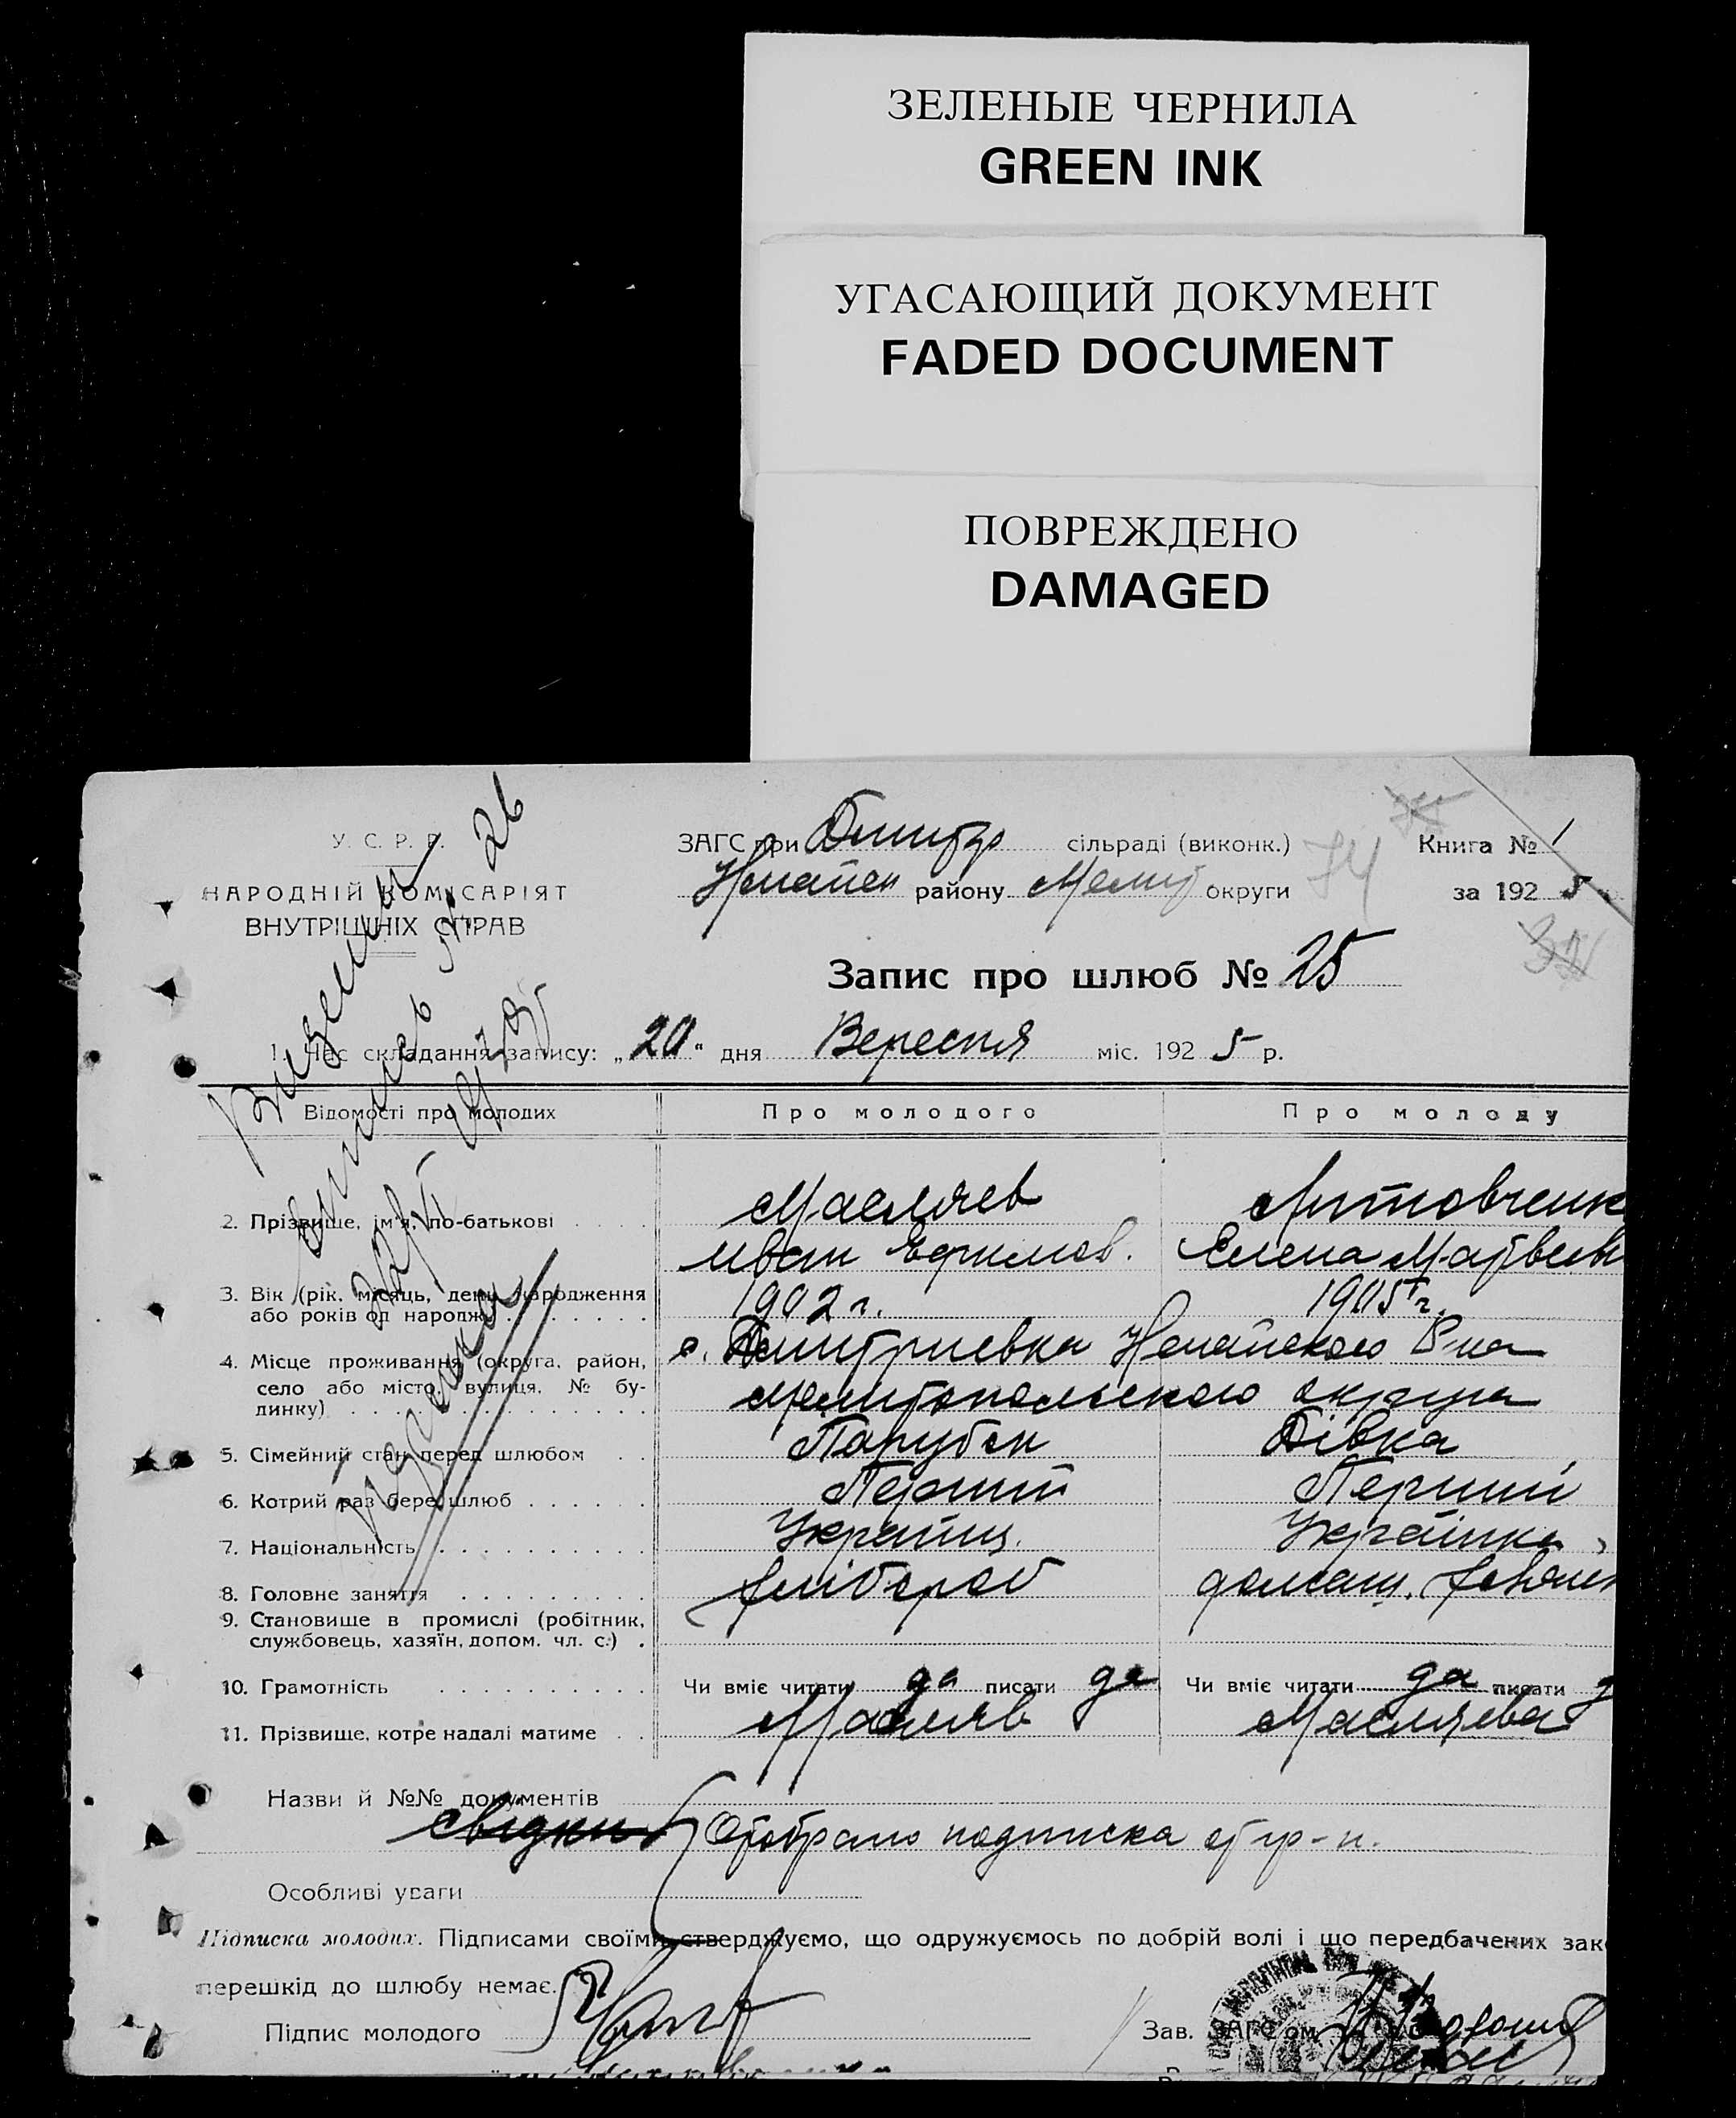 ЗЕЛЕНЫЕ ЧЕРНИЛА
GREEN INK
УГАСАЮЩИЙ ДОКУМЕНТ
FADED DOCUMENT
ПОВРЕЖДЕНО
DAMAGED
У. С. Р. Р.
НАРОДНІЙ КОМІСАРІЯТ
ВНУТРІШНІХ СПРАВ
ЗАГС при Дмитр сільраді (виконк.)
району Мелит округи
74
Книга № 1
за 192 5
Запис про шлюб № 25
1. Час складання запису: „20" дня Вересня міс. 192 5 р.
Відомості про молодих Про молодого Про молоду
2. Прізвище, ім'я, по-батькові Масляев Литовченк
Иван Ефимов. Елена Матвеев
3. Вік (рік, місяць, день народження 1902 г. 1905 г.
або років од народж.)
4. Місце проживання (округа, район, с. Дмитриевка
село або місто, вулиця, № бу- Мелитопольского округа
динку)
5. Сімейний стан перед шлюбом Парубок Дівка
6. Котрий раз бере шлюб Перший Перший
7. Національність Українц. Українка
8. Головне заняття хлібороб домашн.
9. Становище в промислі (робітник,
службовець, хазяїн, допом. чл. с.)
10. Грамотність Чи вміє читати да писати да Чи вміє читати да писати
11. Прізвище, котре надалі матиме Масляев Масляева
Назви й №№ документів
Отобрано подписка
Особливі уваги
Підписка молодих. Підписами своїми стверджуємо, що одружуємось по добрій волі і що передбачених зак
перешкід до шлюбу немає.
Підпис молодого
Зав. ЗАГС'ом